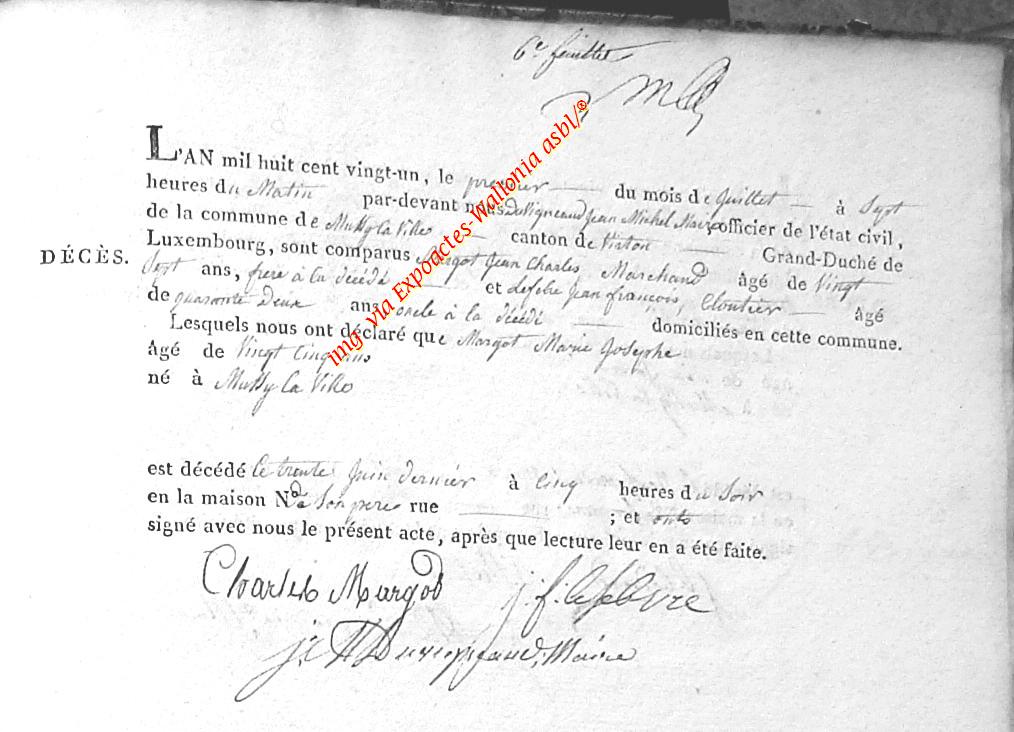 6e feuillet
L'AN mil huit cent vingt-un, le premier du mois de Juillet à Sept
heures du Matin par-devant nous Duvigneaud Jean Michel Maire officier de l'état civil,
de la commune de Mussy la Ville canton de Virton Grand-Duché de
DÉCÈS.
Luxembourg, sont comparus Margot Jean Charles, Marchand âgé de Vingt
Sept ans, frere à la décédé et Lefebre Jean françois, Cloutier âgé
de quarante Deux ans oncle à la décédé domiciliés en cette commune.
Lesquels nous ont déclaré que Margot Marie Josephe
âgé de Vingt Cinq ans
né à Mussy la Ville
est décédé le trente Juin dernier à Cinq heures du Soir
en la maison Nº de Son pere rue ; et onts
signé avec nous le présent acte, après que lecture leur en a été faite.
Charles Margot j. f. lefebvre
Maire
img via Expoactes-Wallonia asbl/©